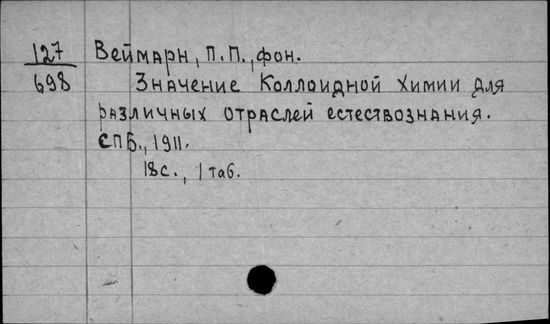 127 Веймарн, П.П., фон.
698 Значение Коллоидной химии для
различных отраслей естествознания.
СПБ., 1911.
18с., 1 таб.